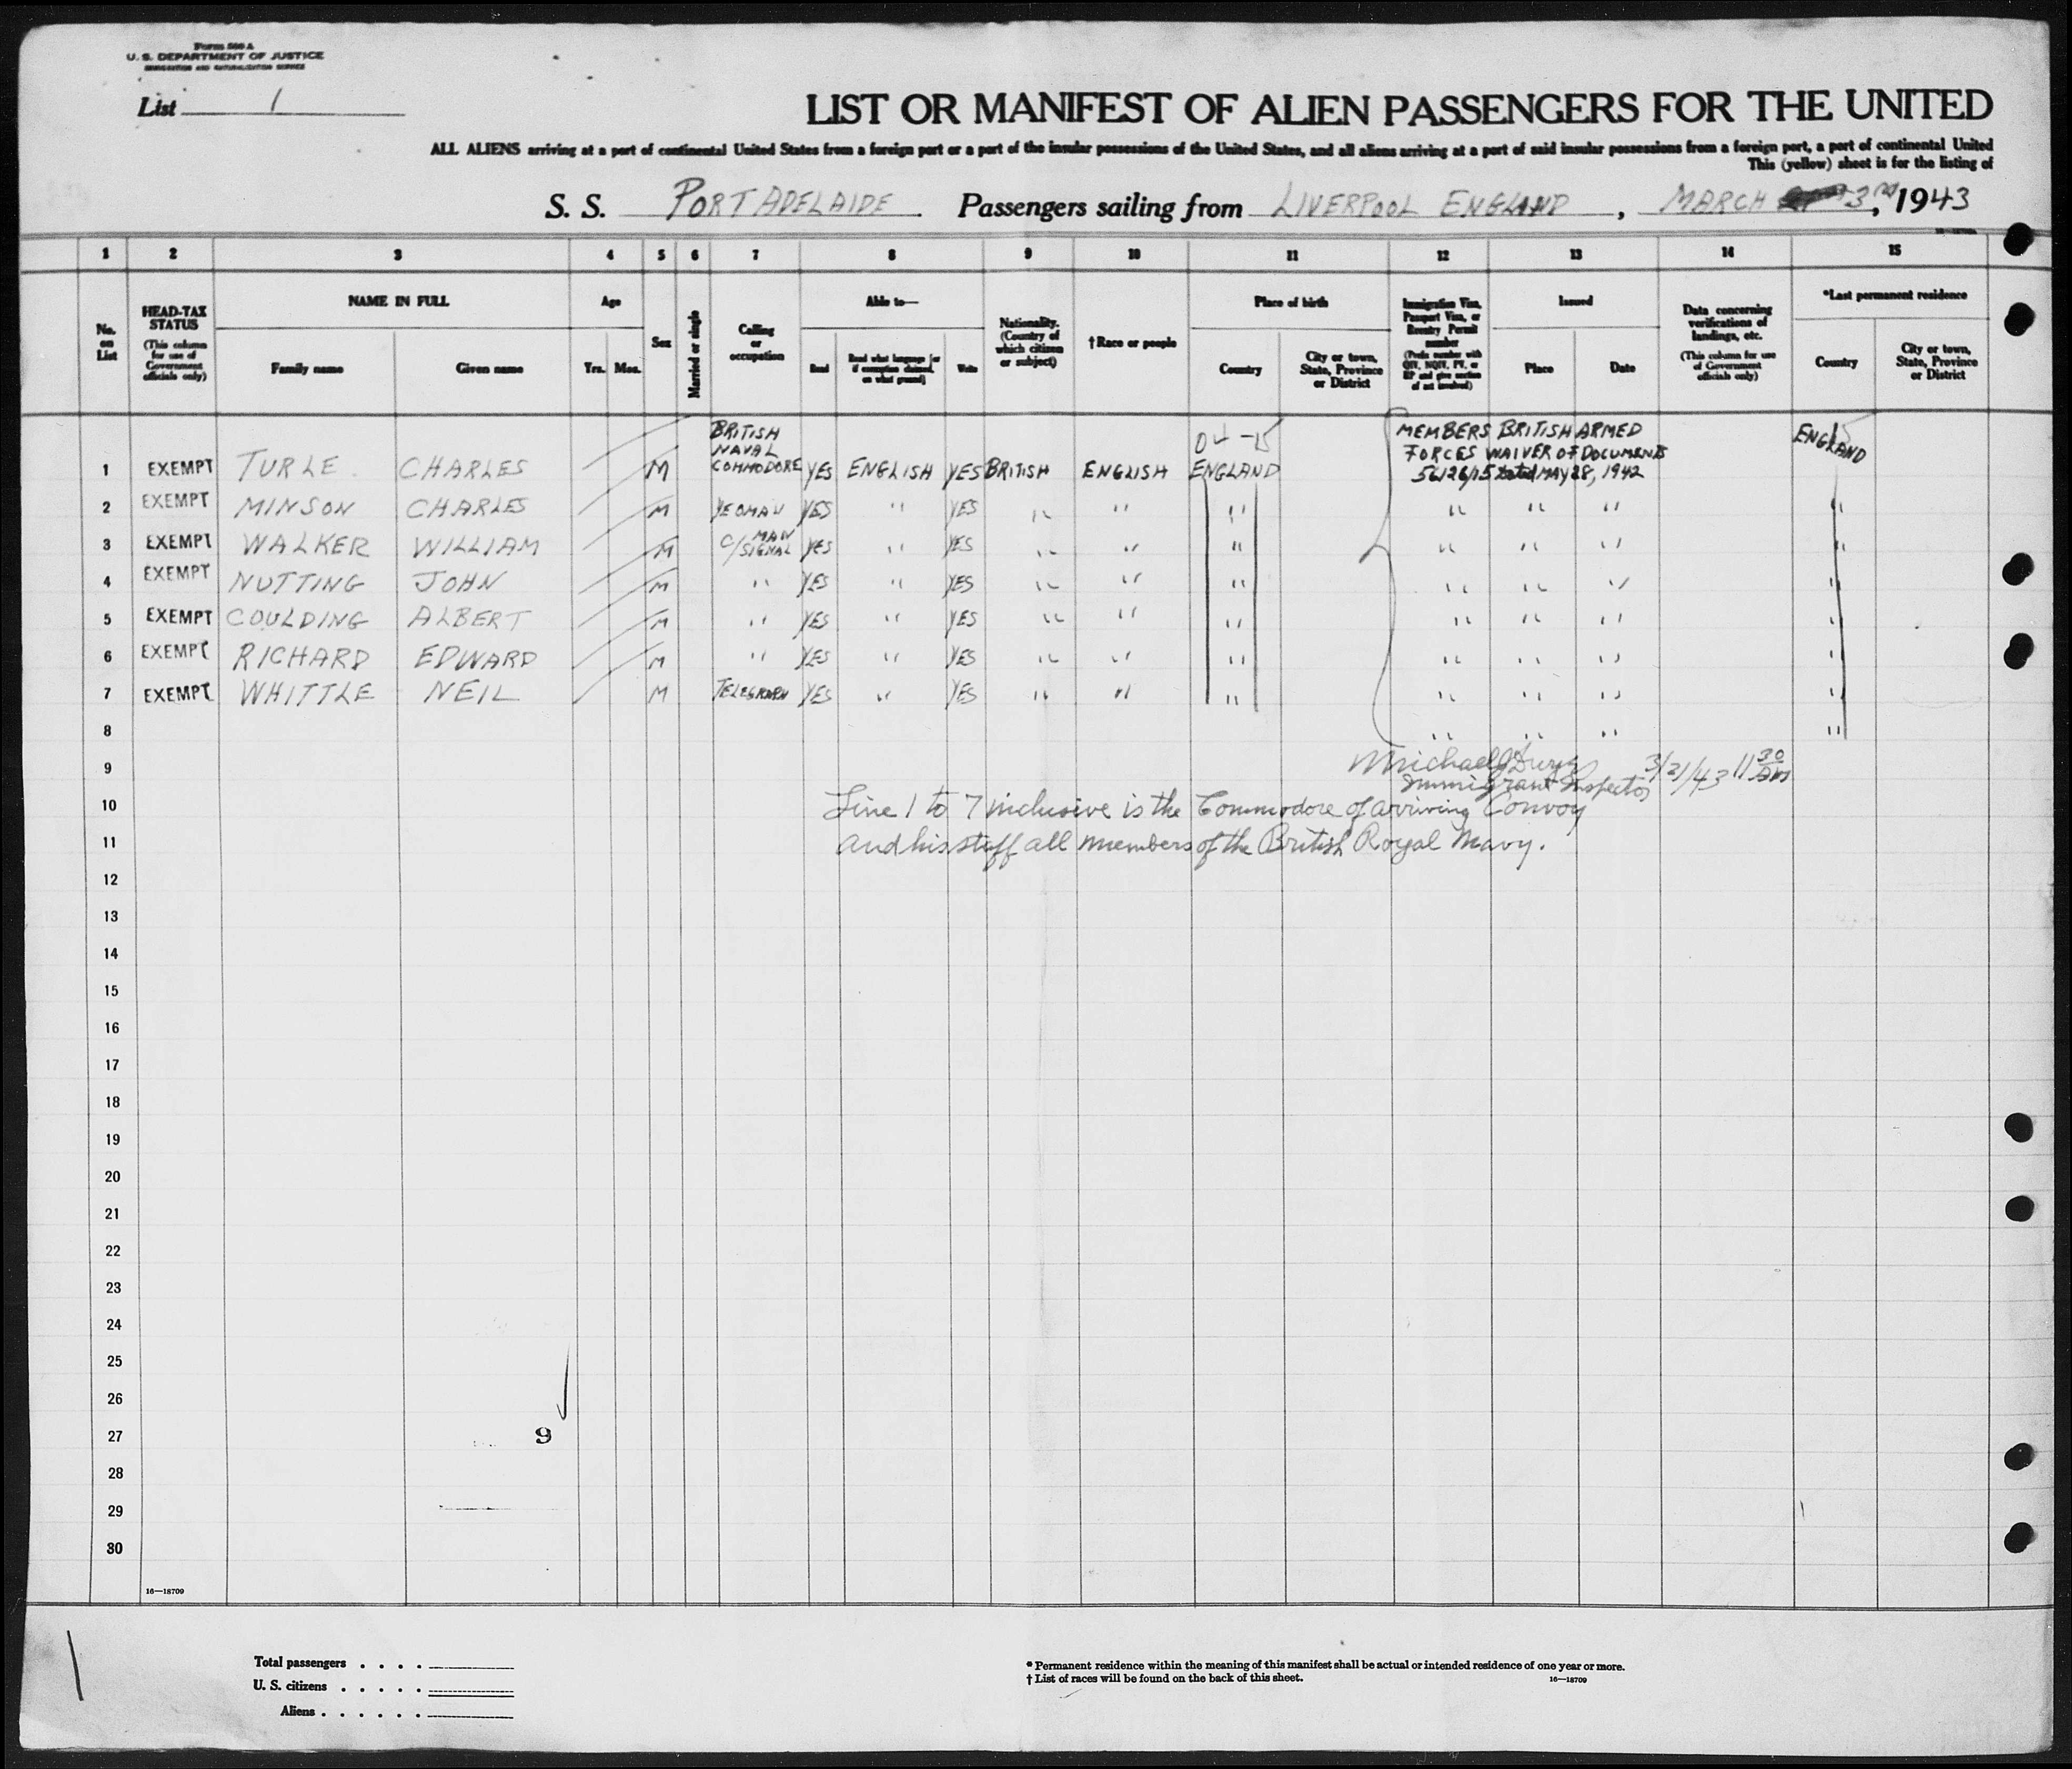 Form 500 A
U. S. DEPARTMENT OF JUSTICE
IMMIGRATION AND NATURALIZATION SERVICE
List 1
LIST OR MANIFEST OF ALIEN PASSENGERS FOR THE UNITED
ALL ALIENS arriving at a port of continental United States from a foreign port or a port of the insular possessions of the United States, and all aliens arriving at a port of said insular possessions from a foreign port, a port of continental United
This (yellow) sheet is for the listing of
S. S. PORT ADELAIDE. Passengers sailing from LIVERPOOL ENGLAND, MARCH 3rd, 1943
1 2 3 4 5 6 7 8 9 10 11 12 13 14 15
No. on List
HEAD-TAX STATUS (This column for use of Government officials only)
NAME IN FULL Family name Given name
Age Yrs. Mos.
Sex
Married or single
Calling or occupation
Able to— Read Read what language [or if exemption claimed, on what ground] Write
Nationality. (Country of which citizen or subject)
†Race or people
Place of birth Country City or town, State, Province or District
Immigration Visa, Passport Visa, or Reentry Permit number (Prefix number with QIV, NQIV, PV, or RP and give section of act involved)
Issued Place Date
Data concerning verifications of landings, etc. (This column for use of Government officials only)
*Last permanent residence Country City or town, State, Province or District
04-15 15
1 EXEMPT TURLE. CHARLES M BRITISH NAVAL COMMODORE YES ENGLISH YES BRITISH ENGLISH ENGLAND MEMBERS BRITISH ARMED FORCES WAIVER OF DOCUMENTS 56126/15 Dated MAY 28, 1942 ENGLAND
2 EXEMPT MINSON CHARLES M YEOMAN YES " YES " " " " " " "
3 EXEMPT WALKER WILLIAM M C/SIGNAL MAN YES " YES " " " " " " "
4 EXEMPT NUTTING JOHN M " YES " YES " " " " " " "
5 EXEMPT COULDING ALBERT M " YES " YES " " " " " " "
6 EXEMPT RICHARD EDWARD M " YES " YES " " " " " " "
7 EXEMPT WHITTLE NEIL M YES " YES " " " " " " "
8 " " " "
9 Michael 3/21/43 11 30 AM
Immigrant Inspector
10 Line 1 to 7 inclusive is the Commodore of arriving Convoy
11 and his staff all members of the British Royal Navy.
12
13
14
15
16
17
18
19
20
21
22
23
24
25
26
27 9
28
29
30
16—18709
Total passengers . . . .
U. S. citizens . . . . .
Aliens . . . . . .
* Permanent residence within the meaning of this manifest shall be actual or intended residence of one year or more.
† List of races will be found on the back of this sheet. 16—18709